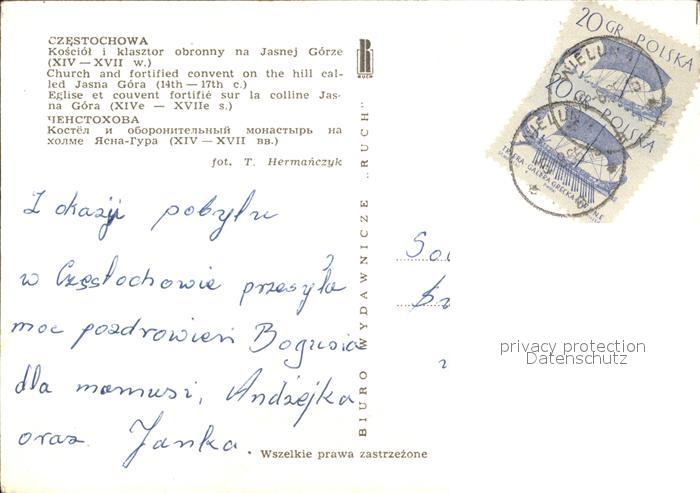 CZĘSTOCHOWA
Kościół i klasztor obronny na Jasnej Górze
(XIV — XVII w.)
Church and fortified convent on the hill cal-
led Jasna Góra (14th — 17th c.)
Eglise et couvent fortifié sur la colline Jas-
na Góra (XIVe — XVIIe s.)
ЧЕНСТОХОВА
Костёл и оборонительный монастырь на
холме Ясна-Гура (XIV — XVII вв.)
fot. T. Hermańczyk
RUCH
BIURO WYDAWNICZE „RUCH"
20 GR POLSKA
20 GR POLSKA
WIELUŃ
WIELUŃ
GALERA GRECKA
Z okazji pobytu
w Częstochowie przesyła
moc pozdrowień Bogusia
dla mamusi, Andżejka
oraz Janka.
privacy protection
Datenschutz
Wszelkie prawa zastrzeżone